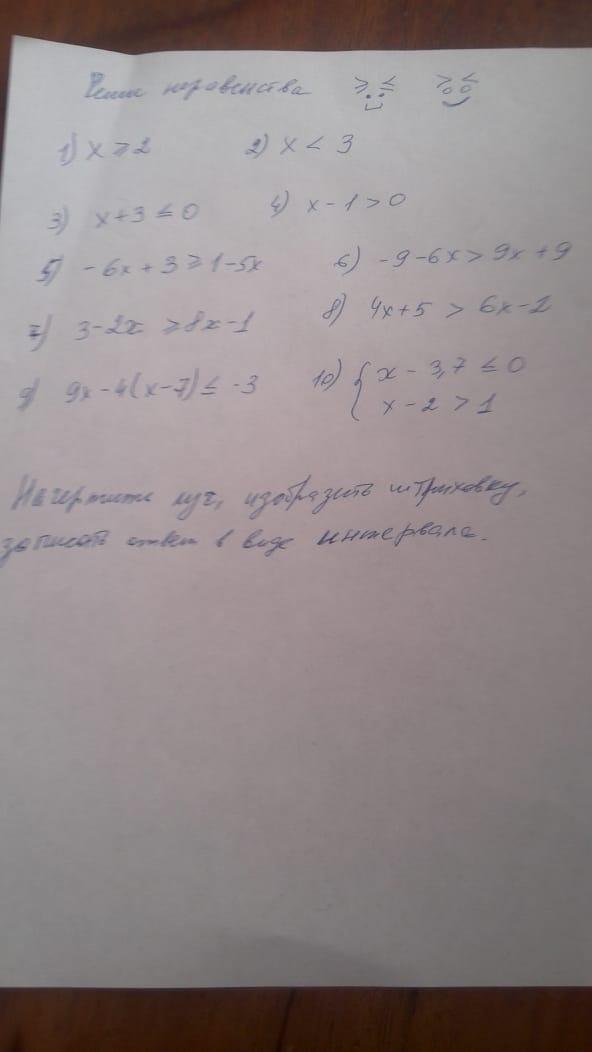 Реши неравенства
1) x ≥ 2 2) x < 3
3) x+3 ≤ 0 4) x - 1 > 0
5) -6x + 3 ≥ 1-5x 6) -9-6x > 9x + 9
7) 3-2x ≥ 8x-1 8) 4x+5 > 6x-2
9) 9x-4(x-7) ≤ -3 10) { x - 3,7 ≤ 0
x - 2 > 1
Начертите луч, изобразить штриховку,
записать ответ в виде интервала.